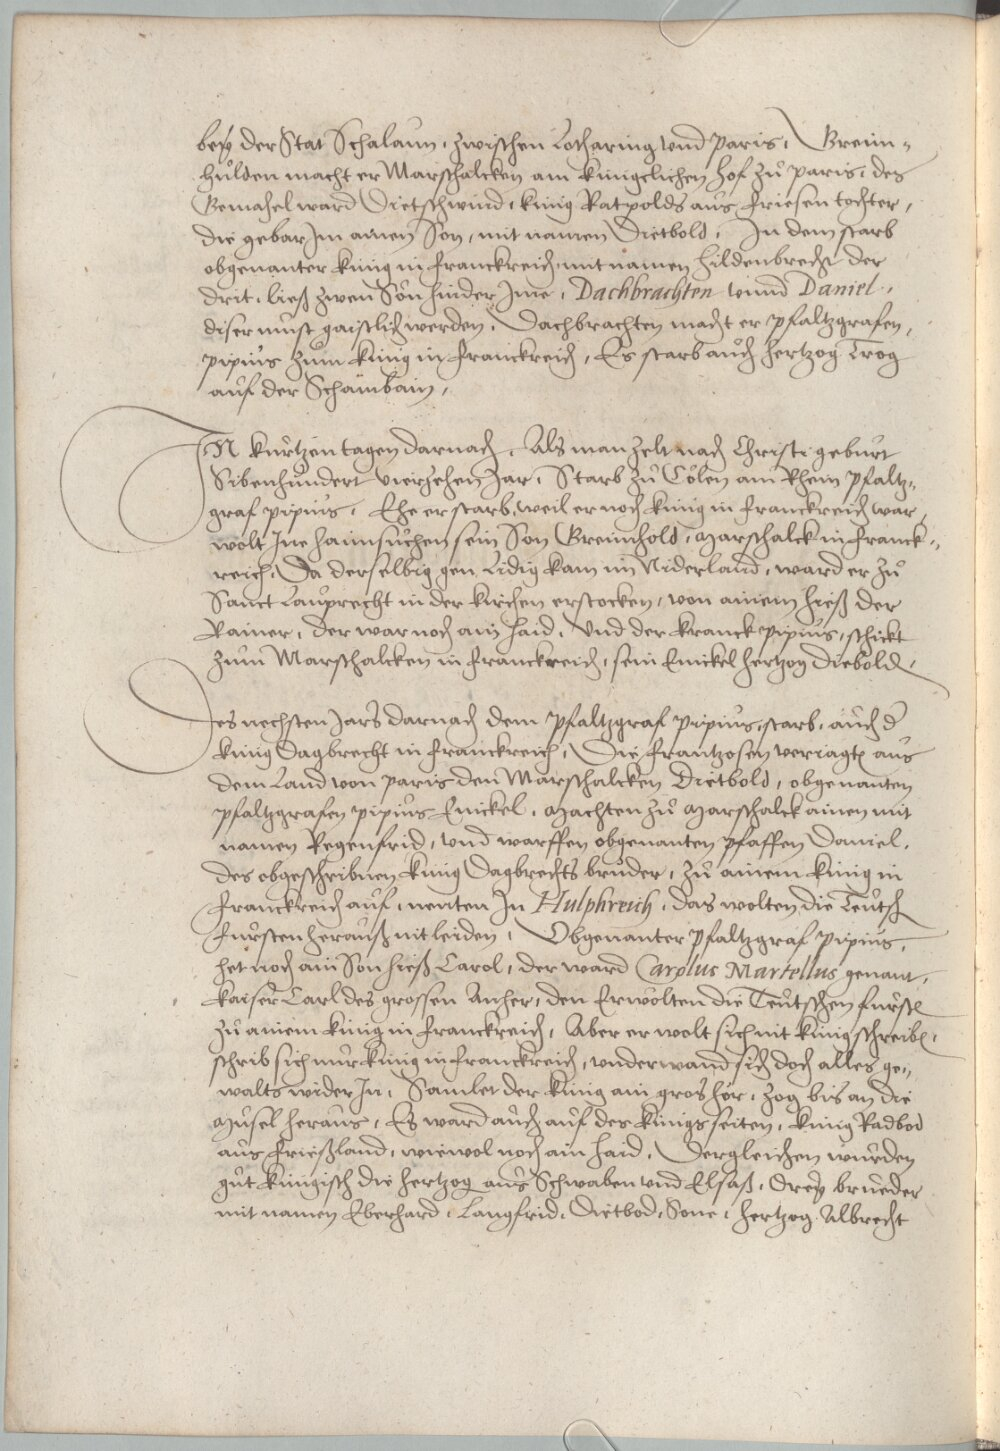 bey der Stat Schalaun, zwischen Lotharing vnd Paris, Grein-
hulden macht er Marschalcken am künigclichen hof zů Paris, des
Gemahel ward Dietschwind, künig Ratpolds aus Friesen tochter,
die gebar Im ainen Son, mit namen Dietbold, In dem starb
obgenanter künig in Franckreich, mit namen Hildenbrecht der
drit, ließ zwen Sön hinder Ime, Dachbrachten vnnd Daniel,
diser můst gaistlich werden, Dachbrachten macht er Pfaltzgrafen,
Pipius zum künig in Franckreich, Es starb auch Hertzog Trog
auf der Schambain,
IN kurtzen tagen darnach, Als man zelt nach Christi geburt
Sibenhundert vierzehen Jar, Starb zů Cölen am Rhein Pfaltz-
graf Pipius, Ehe er starb, weil er noch künig in Franckreich war,
wolt Ine haimsuchen sein Son Greimhold, Marschalck in Franck-
reich, Da derselbig gen Lidig kam im Niderland, ward er zů
Sanct Lauprecht in der kirchen erstochen, von ainem hieß der
Rainer, der war noch ain haid, Vnd der kranck Pipius, schickt
zum Marschalcken in Franckreich, sein Enickel hertzog Diebold,
Des nechsten Jars darnach dem Pfaltzgraf Pipius, starb, auch d'
künig Dagbrecht in Franckreich, Die Frantzosen veriagtē aus
dem Land von Paris den Marschalcken Dietbold, obgenanten
Pfaltzgrafen Pipius Enickel, Machten zů Marschalck ainen mit
namen Regenfrid, vnd warffen obgenanten Pfaffen Daniel,
des obgeschribnen künig Dagbrechts bruder, zů ainem künig in
Franckreich auf, nenten In Hulphreich, das wolten die Teutsch
Fürsten herauß nit leiden, Obgenanter Pfaltzgraf Pipius,
het noch ain Son hieß Carol, der ward Carolus Martellus genant,
kaiser Carl des grossen Anher, den Erwölten die Teutschen fürstē
zů ainem künig in Franckreich, Aber er wolt sich nit künig schreibē,
schrib sich nur künig in Franckreich, vnderwand sich doch alles ge-
walts wider In, Samlet der künig ain gros hör, zog bis an die
Musel heraus, Es ward auch auf des künigs seiten, künig Radbod
aus Frießland, wiewol noch ain haid, Dergleichen wurden
gůt künigisch die hertzog aus Schwaben vnd Elsaß, drey brueder
mit namen Eberhard, Langfrid, Dietbod, Söne, hertzog Albrecht